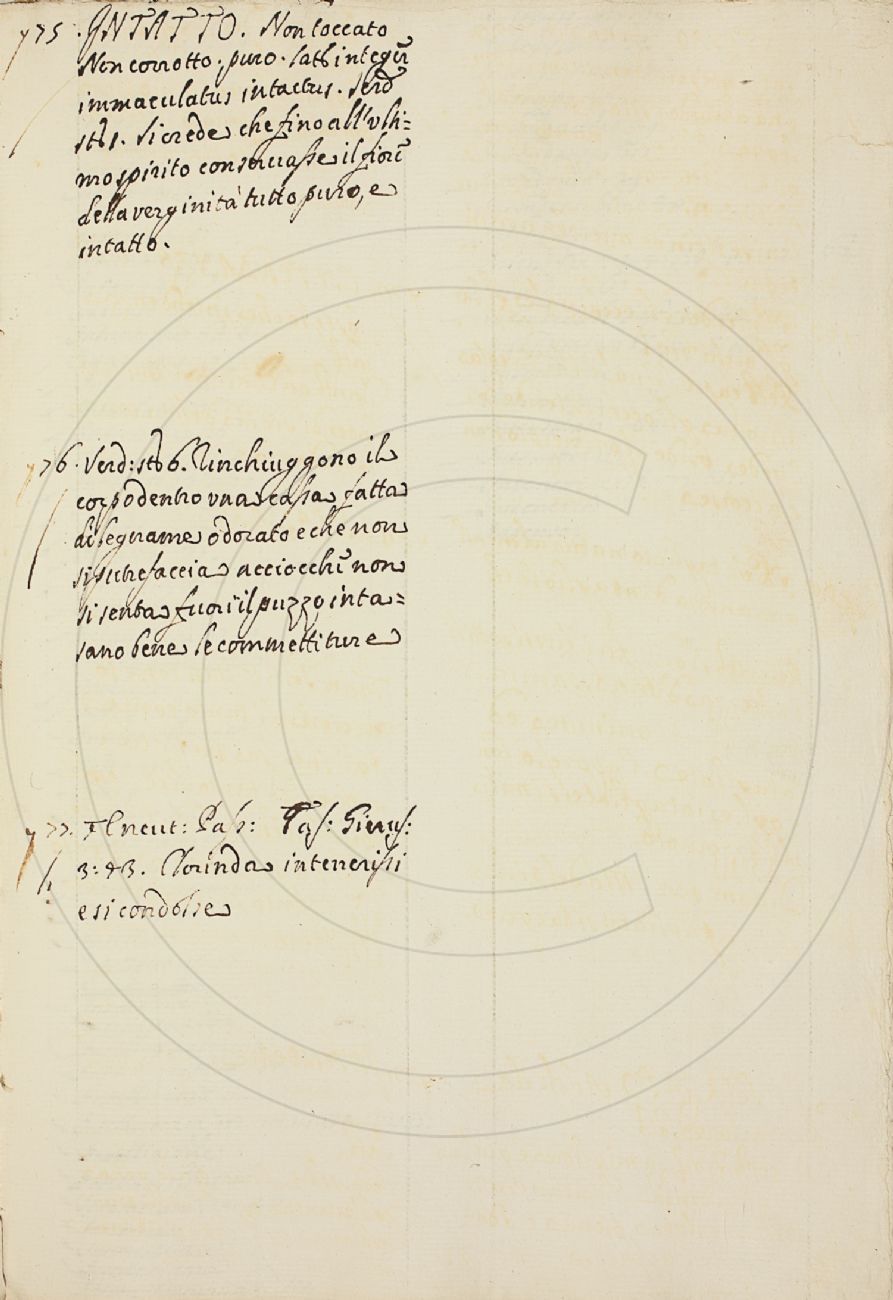 775. INTATTO. Non toccato
Non corrotto. puro. Lat: integer
immaculatus intactus. Serd
sto: 1. Si crede che fino all'ulti=
mo spirito conservasse il fiore
della verginità tutto puro, e
intatto.
776. Serd: sto: 6. Rinchiuggono il
corpo dentro una cassa fatta
di legname odorato e che non
si putrefaccia acciocché non
si senta fuori il puzzo inta=
sano bene le commettiture
777. Neut: Pass: Tass: Gierus:
3:43. Clorinda intenerissi
e si condolse